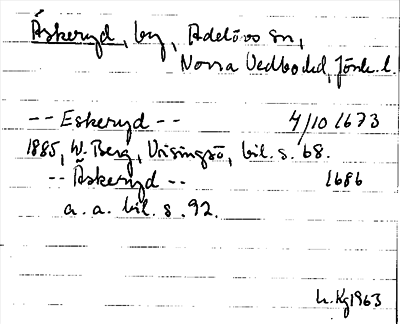 Äskeryd, by, Adelövs sn,
Norra Vedbo hd, Jönk. l.
-- Eskeryd -- 4/10 1673
1885, W. Berg, Visingsö, bil. s. 68.
-- Äskeryd -- 1686
a. a. bil. s. 92.
L. Kg 1963